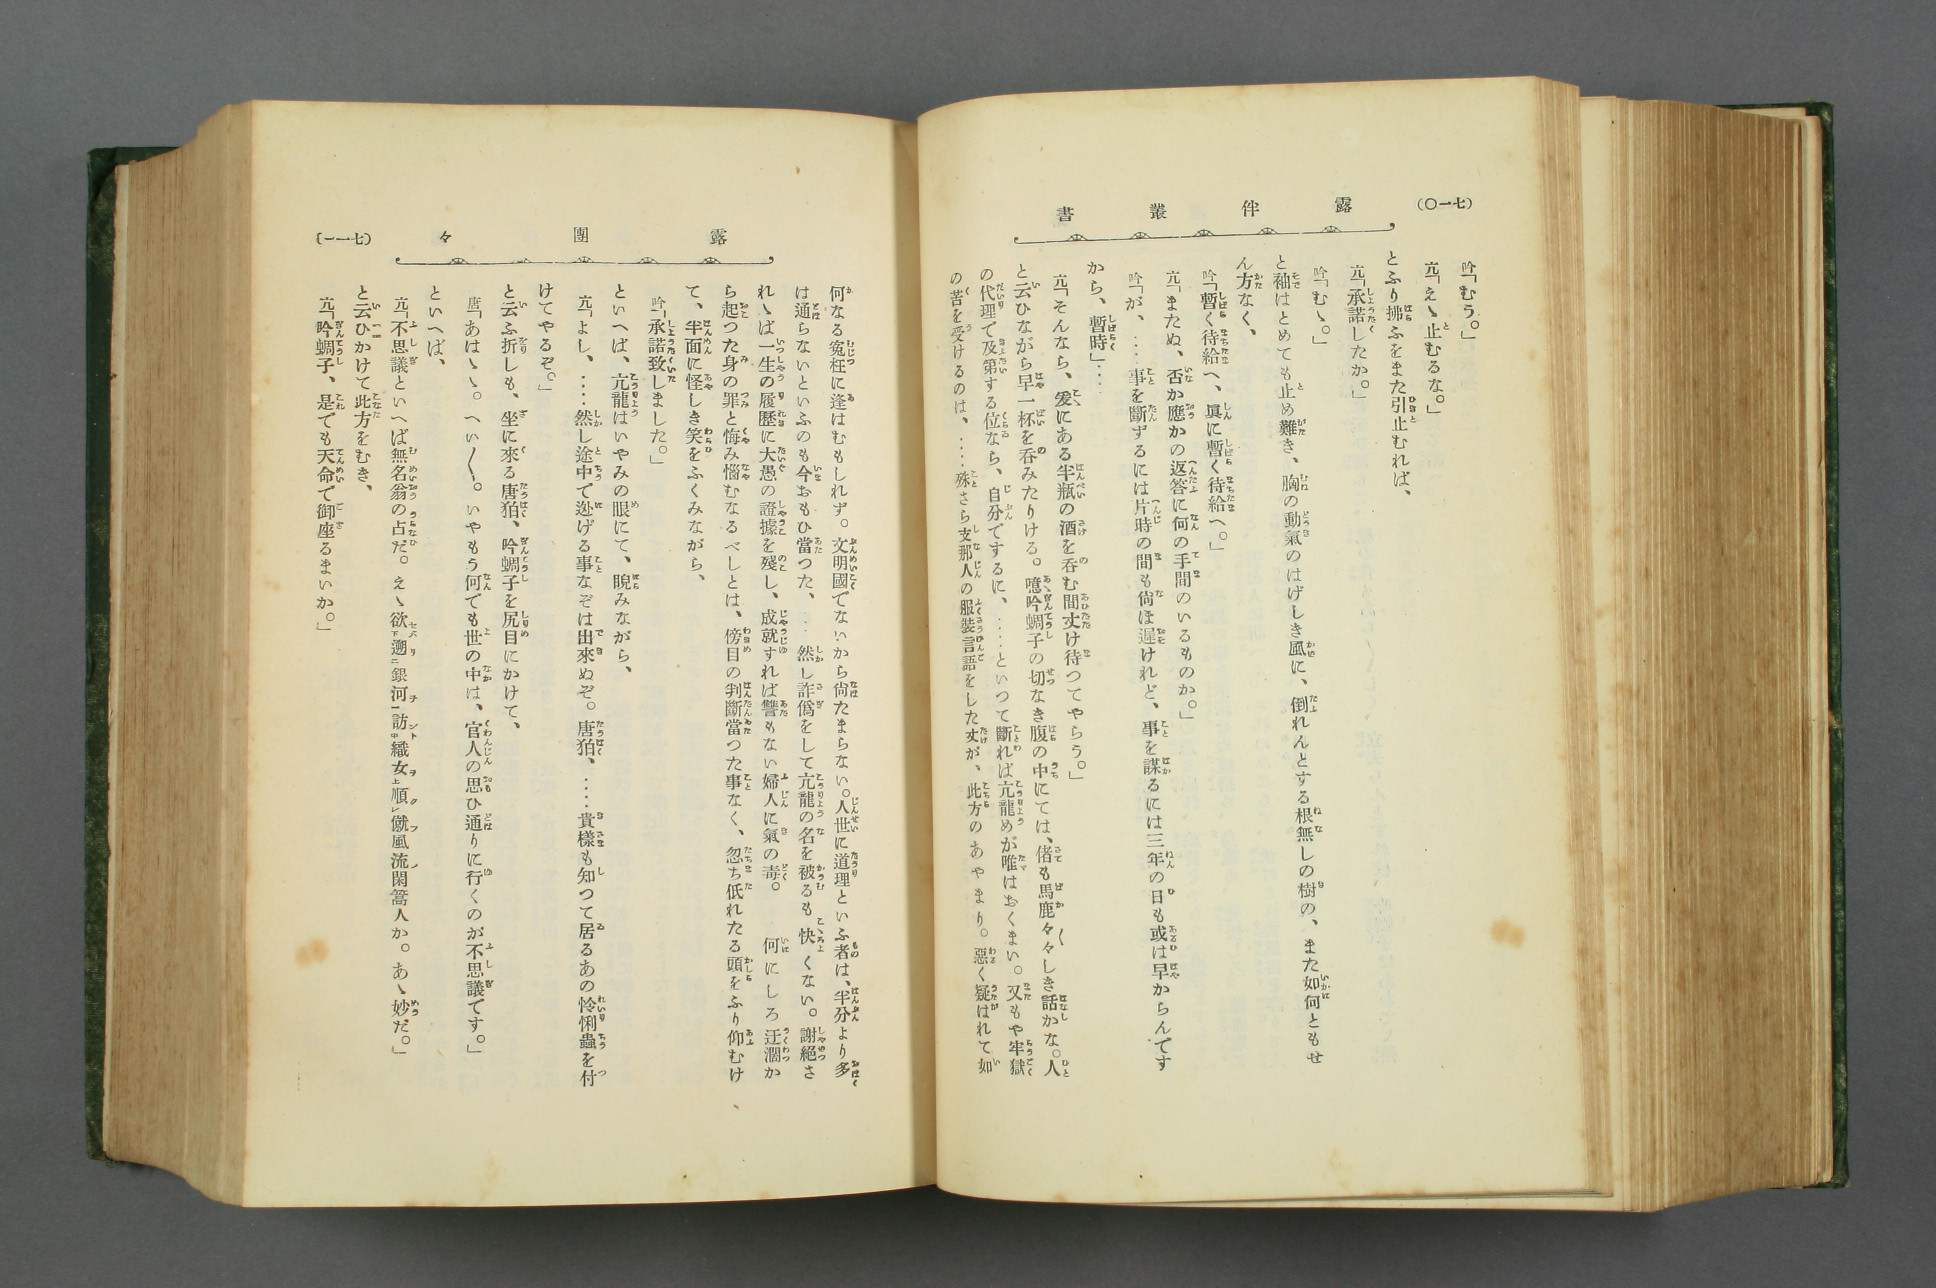 (七一〇)
露伴叢書
吟「むう。」
亢「えゝ止むるな。」
とふり拂ふをまた引止むれば、
亢「承諾したか。」
吟「むゝ。」
と袖はとめても止め難き、胸の動氣のはげしき風に、倒れんとする根無しの樹の、また如何ともせ
ん方なく、
吟「暫く待給へ、眞に暫く待給へ。」
亢「またぬ、否か應かの返答に何の手間のいるものか。」
吟「が、‥‥事を斷ずるには片時の間も尙ほ遲けれど、事を謀るには三年の日も或は早からんです
から、暫時」‥‥
亢「そんなら、爰にある半瓶の酒を呑む間丈け待つてやらう。」
と云ひながら早一杯を呑みたりける。噫吟蜩子の切なき腹の中にては、偖も馬鹿々々しき話かな。人
の代理で及第する位なら、自分でするに、‥‥といつて斷れば亢龍めが唯はおくまい。又もや牢獄
の苦を受けるのは、‥‥殊さら支那人の服裝言語をした丈が、此方のあやまり。惡く疑はれて如
露團々
(七一一)
何なる寃枉に逢はむもしれず。文明國でないから尙たまらない。人世に道理といふ者は、半分より多
は通らないといふのも今おもひ當つた、‥‥然し詐僞をして亢龍の名を被るも快くない。謝絕さ
れゝば一生の履歷に大愚の證據を殘し、成就すれば讐もない婦人に氣の毒。何にしろ迂濶か
ら起つた身の罪と悔み惱むなるべしとは、傍目の判斷當つた事なく、忽ち低れたる頭をふり仰むけ
て、半面に怪しき笑をふくみながら、
吟「承諾致しました。」
といへば、亢龍はいやみの眼にて、睨みながら、
亢「よし、‥‥然し途中で迯げる事なぞは出來ぬぞ。唐狛、‥‥貴樣も知つて居るあの怜悧蟲を付
けてやるぞ。」
と云ふ折しも、坐に來る唐狛、吟蜩子を尻目にかけて、
唐「あはゝゝ。へい〳〵。いやもう何でも世の中は、官人の思ひ通りに行くのが不思議です。」
といへば、
亢「不思議といへば無名翁の占だ。えゝ欲下遡二銀河一訪中織女上順レ僦風流閑篙人か。あゝ妙だ。」
と云ひかけて此方をむき、
亢「吟蜩子、是でも天命で御座るまいか。」